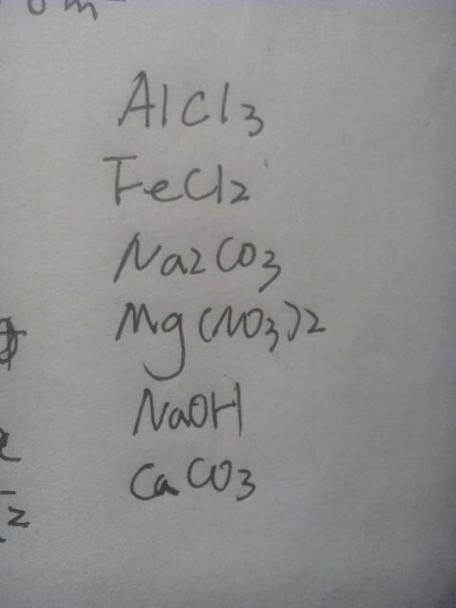 AlCl3
FeCl2
Na2CO3
Mg(NO3)2
NaOH
CaCO3